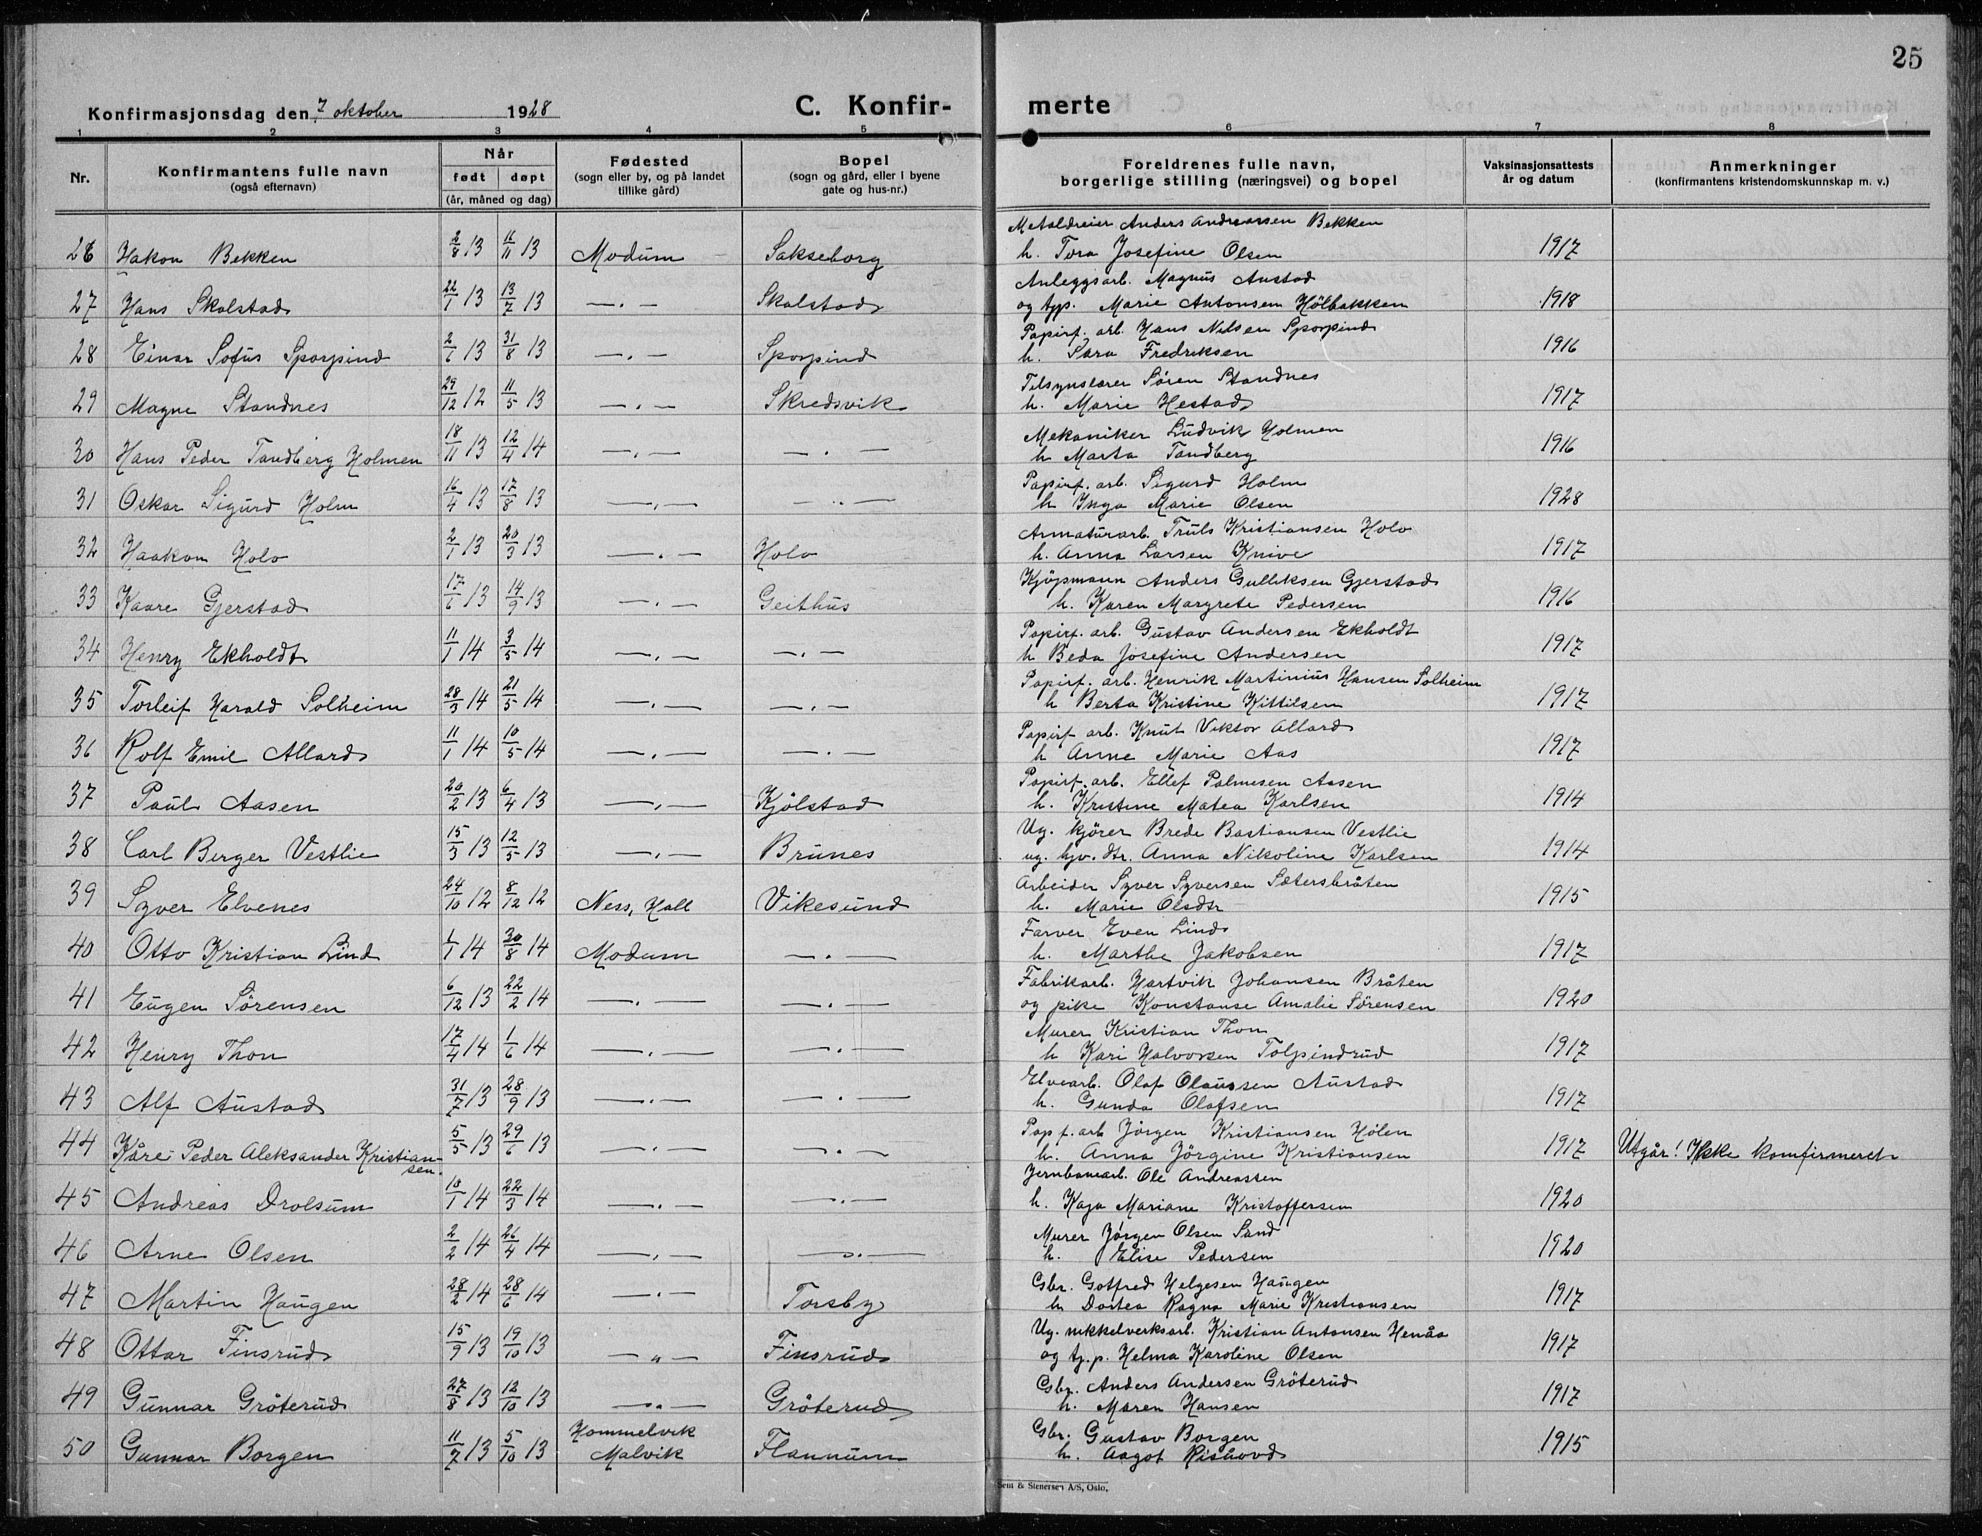 25
Konfirmasjonsdag den 7 oktober 1928
C. Konfir-
merte
1 2 3 4 5 6 7 8
Nr.
Konfirmantens fulle navn
(også efternavn)
Når
født døpt
(år, måned og dag)
Fødested
(sogn eller by, og på landet
tillike gård)
Bopel
(sogn og gård, eller i byene
gate og hus-nr.)
Foreldrenes fulle navn,
borgerlige stilling (næringsvei) og bopel
Vaksinasjonsattests
år og datum
Anmerkninger
(konfirmantens kristendomskunnskap m. v.)
Metaldreier Anders Andreassen Bekken
26 Hakon Bekken 2/8 13 11/11 13 Modum Sakseborg h. Tora Josefine Olsen 1917
Anleggsarb. Magnus Austad
27 Hans Skalstad 22/1 13 13/7 13 —.— Skalstad og tjp. Marie Antonsen Hölbakken 1918
Papirf. arb. Hans Nilsen Sporpind
28 Einar Sofus Sporpind 2/1 13 31/8 13 —.— Sporpind h. Sara Fredriksen 1916
Tilsynslærer Søren Standnes
29 Magne Standnes 29/12 12 11/5 13 —.— Skredsvik h. Marie Hestad 1917
Mekaniker Ludvik Holmen
30 Hans Peder Tandberg Holmen 18/11 13 12/4 14 —.— —.— h Marta Tandberg 1916
Papirf. arb. Sigurd Holm
31 Oskar Sigurd Holm 16/4 13 17/8 13 —.— —.— h Inga Marie Olsen 1928
Armaturarb. Truls Kristiansen Holo
32 Haakon Holo 2/1 13 20/3 13 —.— Holo h. Anna Larsen Knive 1917
Kjøpmann Anders Gulliksen Gjerstad
33 Kaare Gjerstad 17/6 13 14/9 13 —.— Geithus h. Karen Margrete Pedersen 1916
Papirf. arb. Gustav Andersen Ekholdt
34 Henry Ekholdt 11/1 14 3/5 14 —.— —.— h Beda Josefine Andersen 1917
Papirf. arb. Henrik Martinius Hansen Solheim
35 Torleif Harald Solheim 28/3 14 21/5 14 —.— —.— h Berta Kristine Kittilsen 1917
Papirf arb. Knut Viktor Allard
36 Rolf Emil Allard 11/1 14 10/5 14 —.— —.— h Anne Marie Aas 1917
Papirf. arb. Ellef Palmesen Aasen
37 Paul Aasen 20/2 13 6/4 13 —.— Kjölstad h. Kristine Matea Karlsen 1914
Ug. kjörer Brede Bastiansen Vestlie
38 Carl Berger Vestlie 15/3 13 12/5 13 —.— Brunes ug. hjv. dtr. Anna Nikoline Karlsen 1914
Arbeider Syver Syversen Sætersbråten
39 Syver Elvenes 24/10 12 8/12 12 Ness, Hall Vikesund h. Marie Olsdtr 1915
Farver Even Lind
40 Otto Kristian Lind 1/1 14 30/8 14 Modum —.— h. Marthe Jakobsen 1917
Fabrikarb. Hartvik Johansen Bråten
41 Eugen Sørensen 6/12 13 22/2 14 —.— —.— og pike Konstanse Amalie Sørensen 1920
Murer Kristian Thon
42 Henry Thon 17/4 14 1/6 14 —.— —.— h Kari Halvorsen Tolpindrud 1917
Elvearb. Olaf Olaussen Austad
43 Alf Austad 31/7 13 28/9 13 —.— —.— h. Gunda Olafsen 1917
Pap f. arb Jörgen Kristiansen Hölen
44 Kåre Peder Aleksander Kristian- 5/5 13 29/6 13 —.— —.— h. Anna Jörgine Kristiansen 1917 Utgår! Ikke komfirmeret
sen.
Jernbanearb. Ole Andreassen
45 Andreas Drolsum 10/1 14 22/3 14 —.— —.— h. Kaja Mariane Kristoffersen 1920
Murer Jörgen Olsen Sand
46 Arne Olsen 2/2 14 26/4 14 —.— —.— h. Elise Pedersen 1920
Gbr. Gotfred Helgesen Haugen
47 Martin Haugen 28/2 14 28/6 14 —.— Torsby h Dortea Ragna Marie Kristiansen 1917
Ug. nikkelverksarb. Kristian Antonsen Henås
48 Ottar Finsrud 15/9 13 19/10 13 —„— Finsrud og tj.p. Helma Karoline Olsen 1917
Gbr. Anders Andersen Gröterud
49 Gunnar Gröterud 27/8 13 12/10 13 —„— Gröterud h. Maren Hansen 1917
Hommelvik Gbr. Gustav Borgen
50 Gunnar Borgen 11/7 13 5/10 13 Malvik Flannum h. Aagot Rishovd 1915
Sem & Stenersen A/S, Oslo.